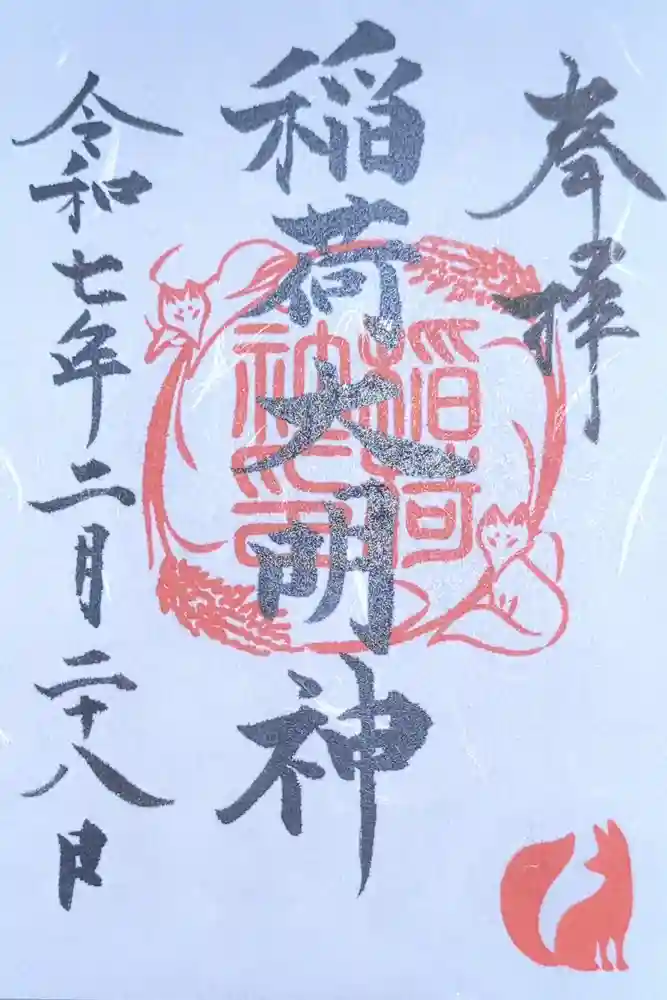 奉拝
稲荷大明神
稲荷
神印
令和七年二月二十八日